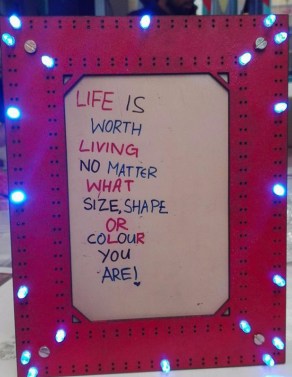 LIFE IS
WORTH
LIVING
NO MATTER
WHAT
SIZE, SHAPE
OR
COLOUR
YOU
ARE!